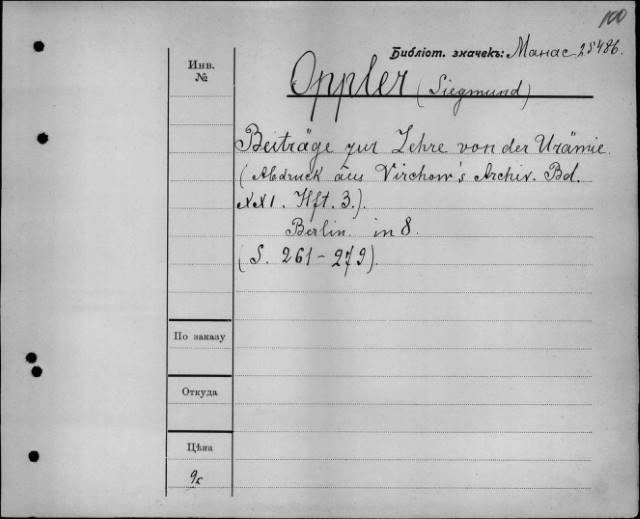 100
Библіот. значекъ: Манас 25486.
Инв.
№
Oppler (Siegmund)
Beiträge zur Lehre von der Urämie.
(Abdruck aus Virchow's Archiv. Bd.
XXI. Hft. 3.).
Berlin. in 8.
(S. 261-279).
По заказу
Откуда
Цѣна